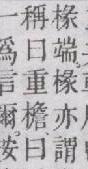 椽端椽亦謂
稱曰重檐曰
一爲言爾按